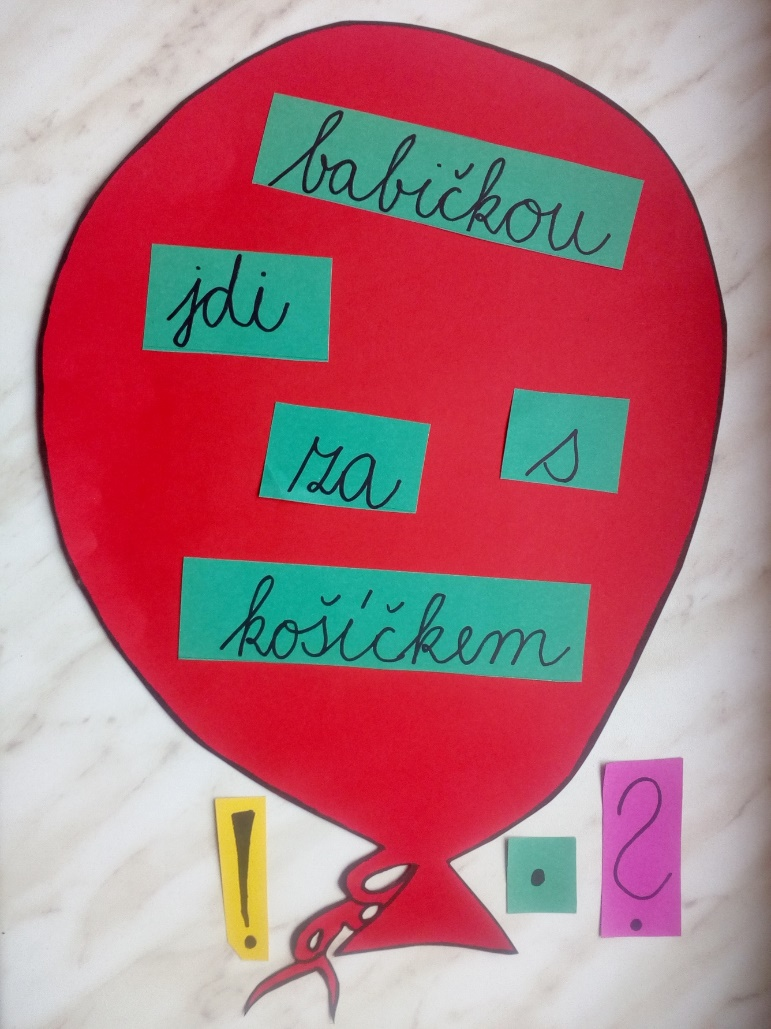 babičkou
jdi
za s
košíčkem
! . ?